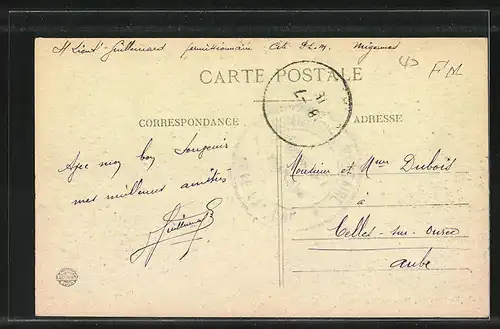 Lieut Guillemard permissionnaire Cie D.L.M. Migennes
F.M.
CARTE POSTALE
CORRESPONDANCE
ADRESSE
Avec mon bon Souvenir
mes meilleures amitiés
Guillemard
Monsieur et Mme Dubois
à
Celles-sur-Ource
Aube